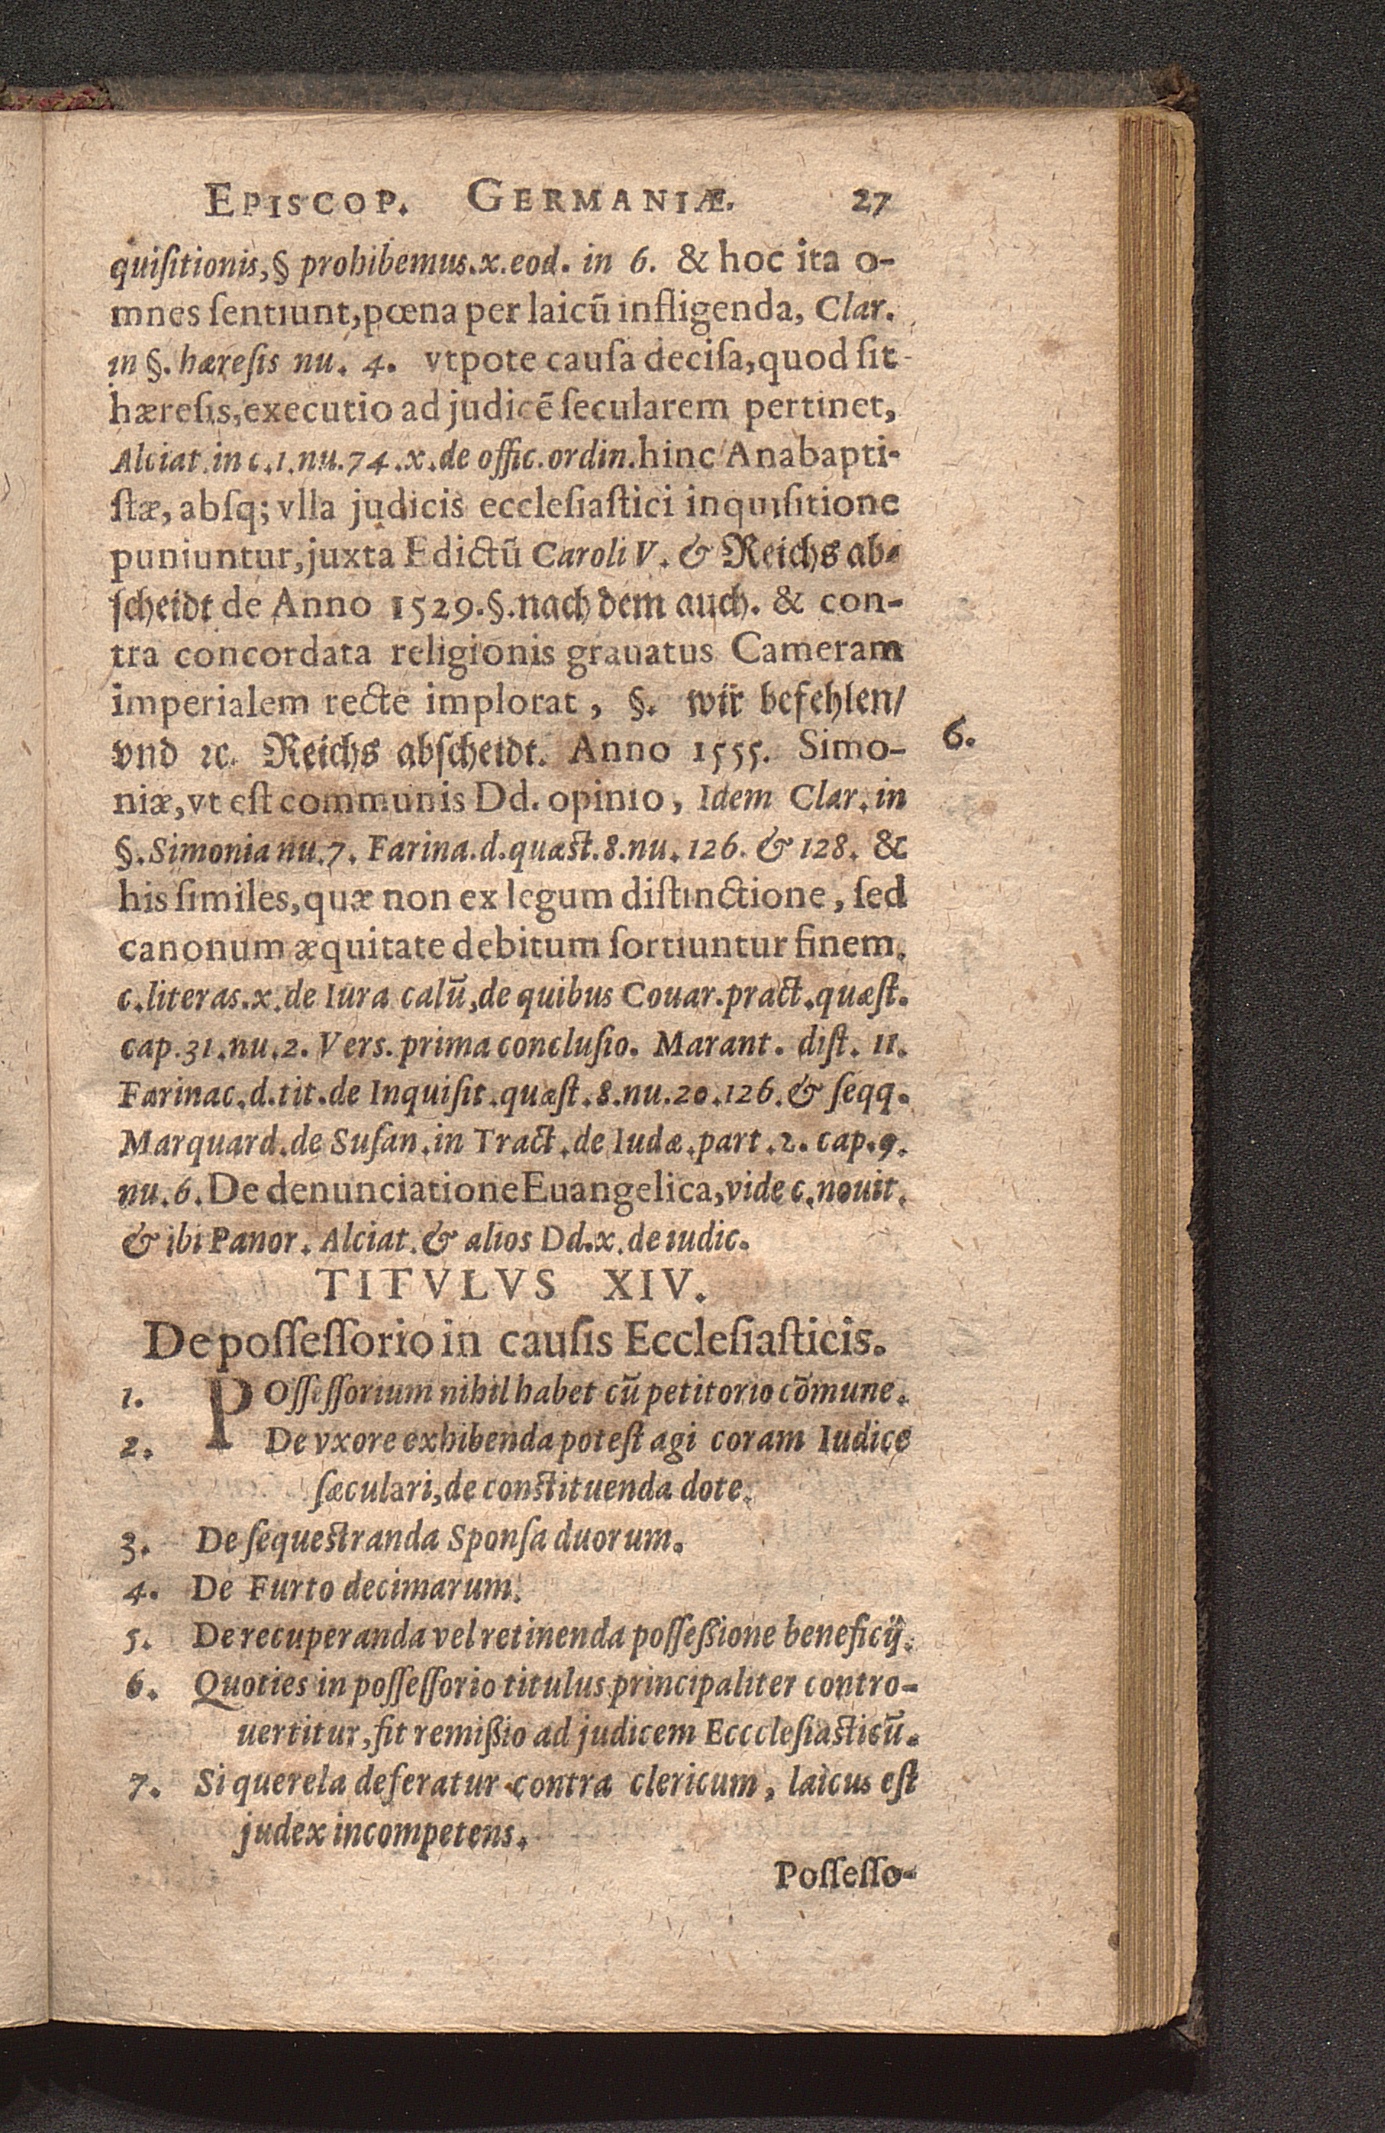 EPISCOP. GERMANIÆ. 27
quiſitionis,§ prohibemus.x.eod. in 6. & hoc ita o-
mnes ſentiunt,pœna per laicũ infligenda, Clar.
in §. hæreſis nu. 4. vtpote cauſa deciſa,quod ſit
hæreſis,executio ad judicẽ ſecularem pertinet,
Alciat.in c.1.nu.74.x.de offic.ordin.hinc Anabapti-
ſtæ, abſq; vlla judicis eccleſiaſtici inquiſitione
puniuntur,juxta Edictũ Caroli V. & Reichs ab-
ſcheidt de Anno 1529.§.nach dem auch. & con-
tra concordata religionis grauatus Cameram
imperialem recte implorat, §. wir befehlen/
vnd ꝛc. Reichs abſcheidt. Anno 1555. Simo- 6.
niæ,vt eſt communis Dd. opinio, Idem Clar.in
§.Simonia nu.7. Farina.d.quæſt.8.nu.126. & 128. &
his ſimiles,quæ non ex legum diſtinctione, ſed
canonum æquitate debitum ſortiuntur finem.
c.literas.x.de Iura calũ,de quibus Couar.pract.quæſt.
cap.31.nu.2. Vers. prima concluſio. Marant. diſt. 11.
Farinac.d.tit.de Inquiſit.quæſt.8.nu.20.126.& ſeqq.
Marquard.de Suſan.in Tract.de Iudæ.part.2. cap.9.
nu.6. De denunciatione Euangelica,vide c.nouit.
& ibi Panor. Alciat.& alios Dd.x.de iudic.
TITVLVS XIV.
De poſſeſſorio in cauſis Eccleſiaſticis.
1. POſſeſſorium nihil habet cũ petitorio cõmune.
2. De vxore exhibenda poteſt agi coram Iudice
ſæculari,de conſtituenda dote.
3. De ſequeſtranda Sponſa duorum.
4. De Furto decimarum.
5. De recuperanda vel retinenda poſſeßione beneficij.
6. Quoties in poſſeſſorio titulus principaliter contro-
uertitur,fit remißio ad judicem Ecccleſiaſticũ.
7. Si querela deferatur contra clericum, laicus eſt
judex incompetens.
Poſſeſſo-